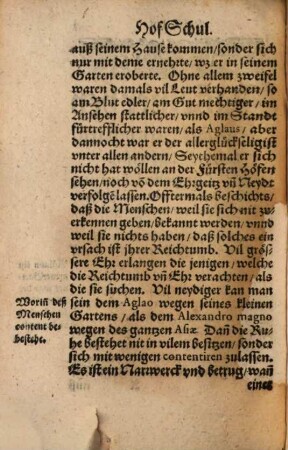 Hof Schul.
auß seinem Hause kommen/ sonder sich
nur mit deme ernehrte/ wz er in seinem
Garten eroberte. Ohne allem zweifel
waren damals vil Leut verhanden/ so
am Blut edler/ am Gut mechtiger/ im
Ansehen stattlicher/ vnnd im Standt
fürtrefflicher waren/ als Aglaus/ aber
dannocht war er der allerglückseligist
vnter allen andern/ Seythemal er sich
nicht hat wöllen an der Fürsten Höfen
sehen/ noch võ dem Ehrgeitz vñ Neydt
verfolgẽ lassen. Offtermals beschichts/
daß die Menschen/ weil sie sich nit zu-
erkennen geben/ bekannt werden/ vnnd
weil sie nichts haben/ daß solches ein
vrsach ist jhrer Reichtumb. Vil grös-
sere Ehr erlangen die jenigen/ welche
die Reichtumb vñ Ehr verachten/ als
die sie suchen. Vil neydiger kan man
sein dem Aglao wegen seines kleinen
Gartens/ als dem Alexandro magno
wegen des gantzen Asiæ. Dañ die Ru-
he bestehet nit in vilem besitzen/ sonder
sich mit wenigen contentiren zulassen.
Es ist ein Narrwerck vnd betrug/ wañ
einer
Woriñ deß
Menschen
content be-
bestehe.